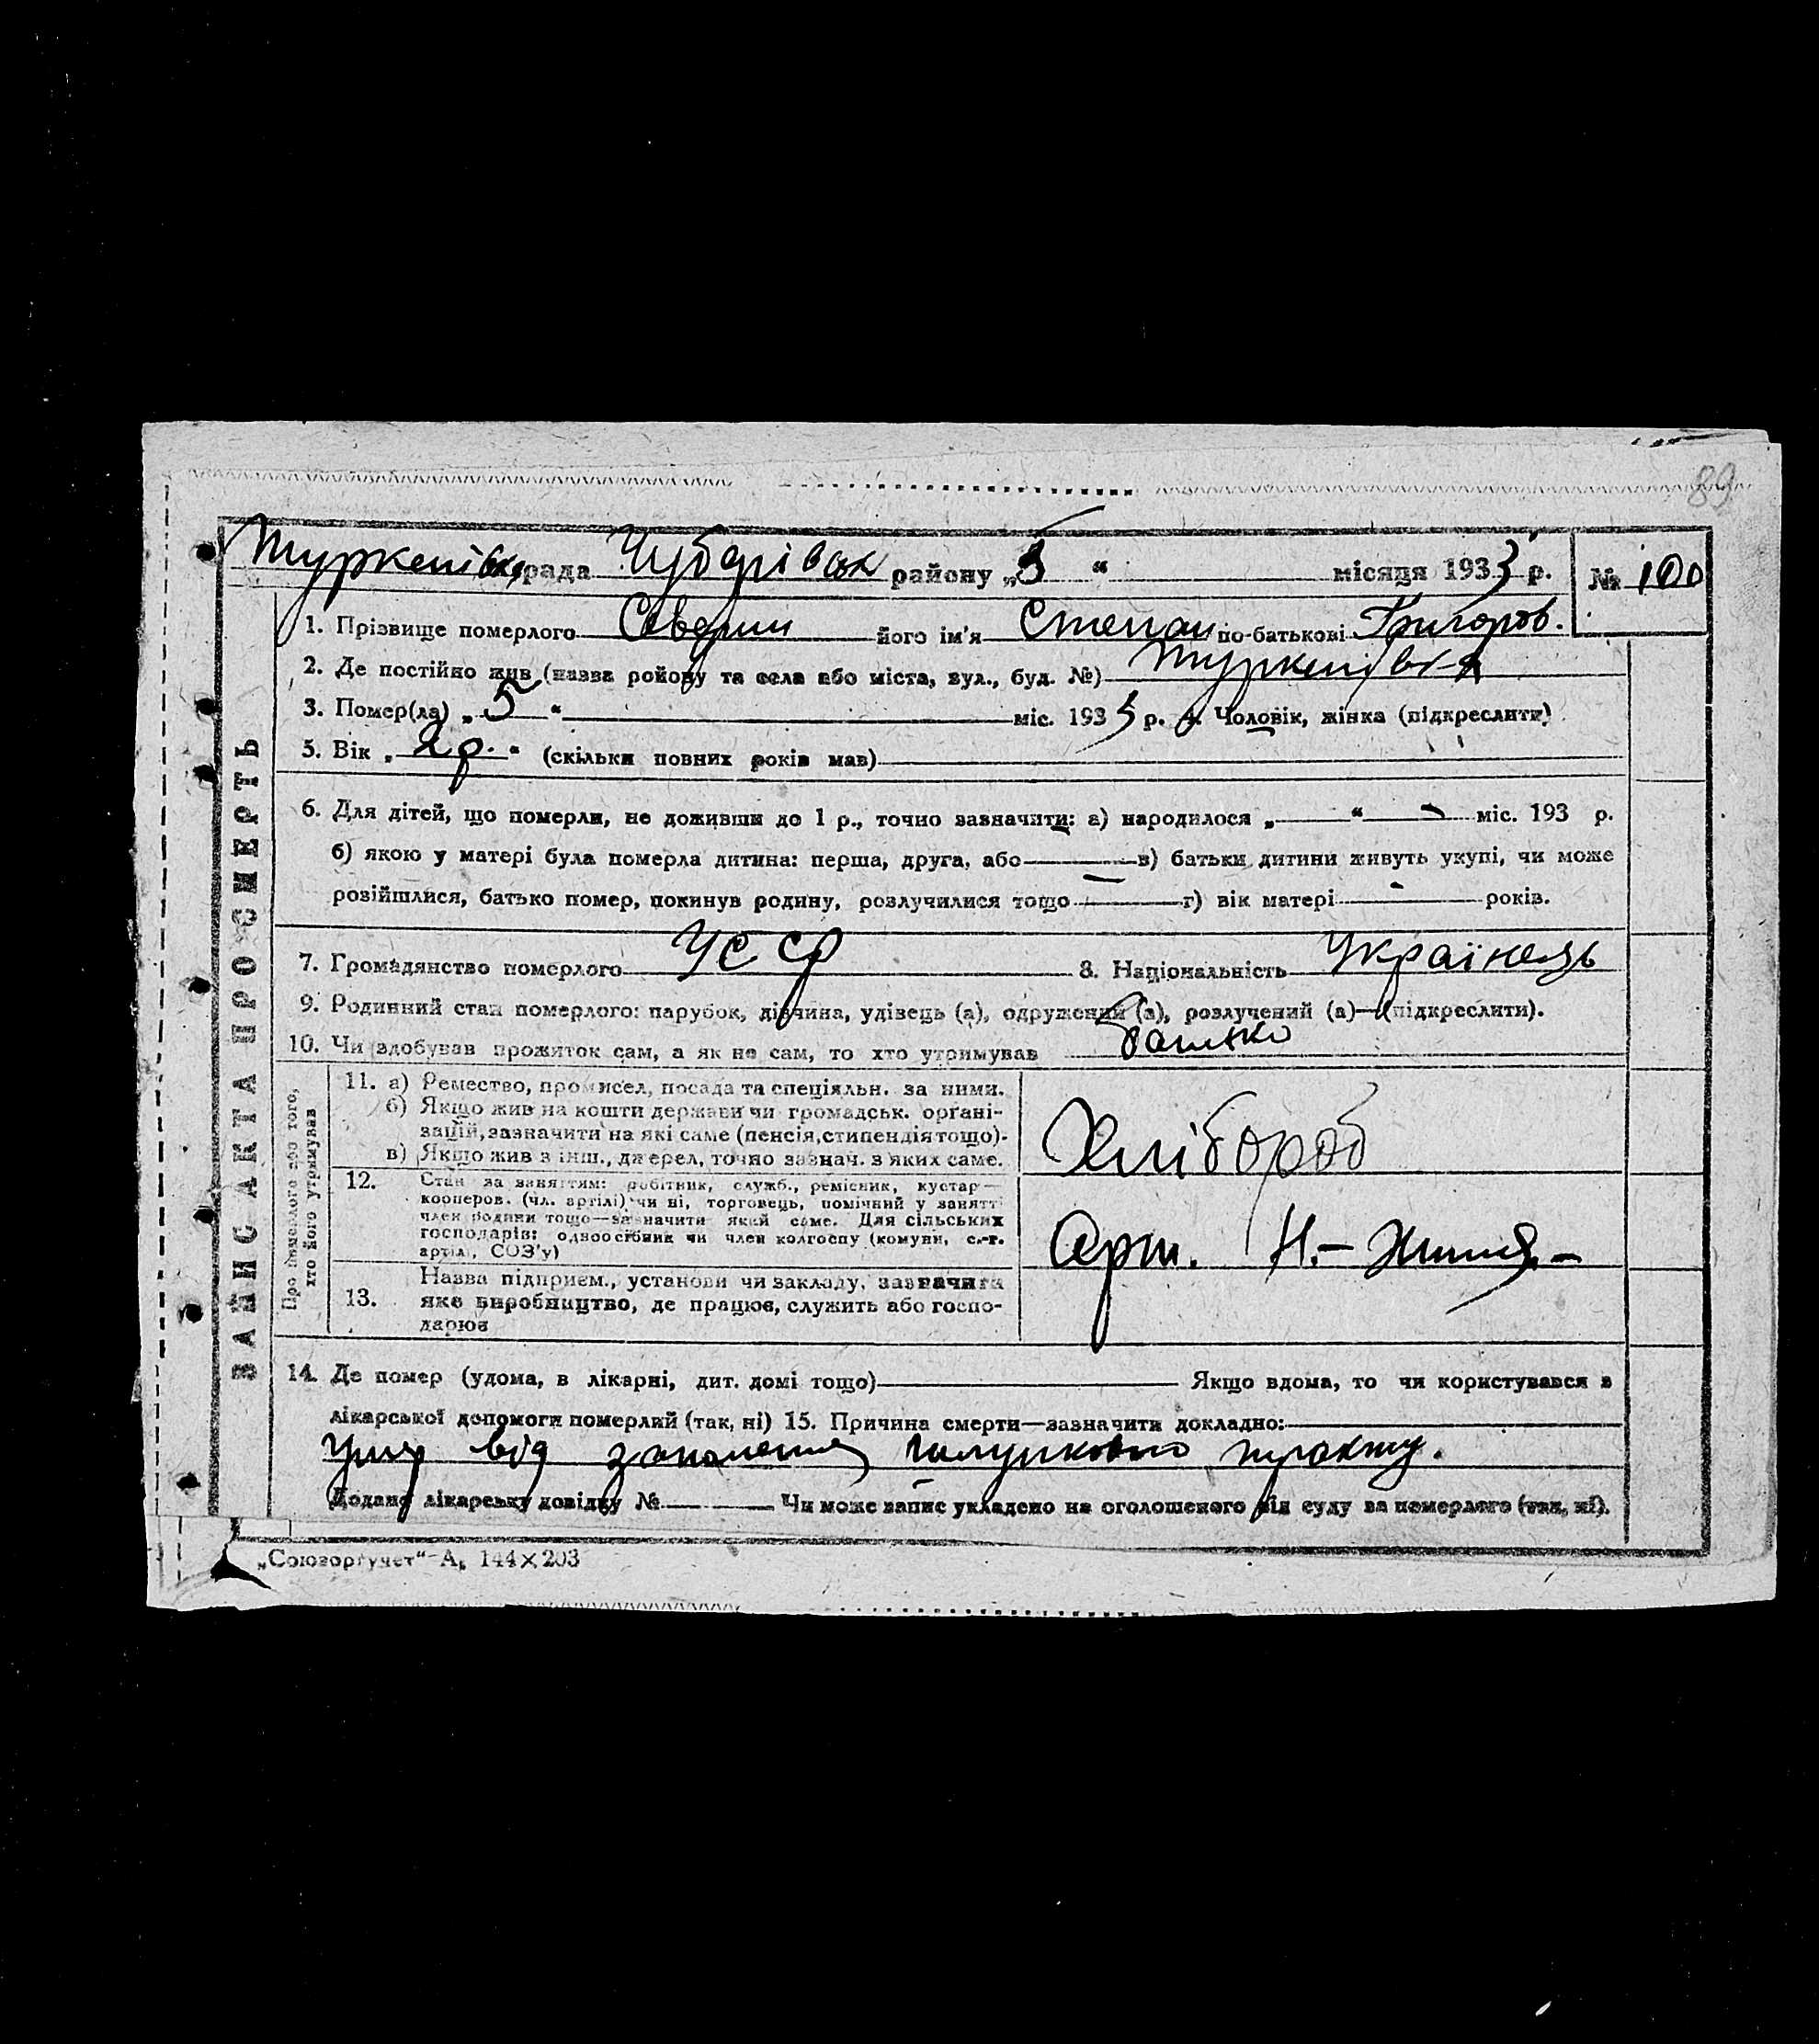 89
Туркенівк рада Чубарівськ району „5“ місяця 1933 р. № 100
ЗАПИС АКТА ПРО СМЕРТЬ
1. Прізвище померлого Северин його ім'я Степан по-батькові Григоров.
2. Де постійно жив (назва району та села або міста, вул., буд. №) Туркенівк-а
3. Помер(ла) „5“ міс. 1933 р. 4. Чоловік, жінка (підкреслити)
5. Вік „2 р.“ (скільки повних років мав)
6. Для дітей, що померли, не доживши до 1 р., точно зазначити: а) народилося „ “ — міс. 193 р.
б) якою у матері була померла дитина: перша, друга, або в) батьки дитини живуть укупі, чи може
розійшлися, батько помер, покинув родину, розлучилися тощо — г) вік матері - років.
7. Громадянство померлого УССР 8. Національність Українець
9. Родинний стан померлого: парубок, дівчина, удівець (а), одружений (а), розлучений (а)—(підкреслити).
10. Чи здобував прожиток сам, а як не сам, то хто утримував батько
Про померлого або того, хто його утримував
11. а) Ремество, промисел, посада та спеціяльн. за ними.
б) Якщо жив на кошти держави чи громадськ. органі-
зацій, зазначити на які саме (пенсія, стипендія тощо).
в) Якщо жив з інш., джерел, точно зазнач. з яких саме.
Хлібороб
12. Стан за заняттям: робітник, служб., ремісник, кустар—
кооперов. (чл. артілі) чи ні, торговець, помічний у занятті
член родини тощо—зазначити який саме. Для сільських
господарів: одноосібник чи член колгоспу (комуни, с.-г.
артілі, СОЗ'у)
Арт. Н.- Життя.-
13. Назва підприєм., установи чи закладу, зазначити
яке виробництво, де працює, служить або госпо-
дарює
14. Де помер (удома, в лікарні, дит. домі тощо) Якщо вдома, то чи користувався з
лікарської допомоги померлий (так, ні) 15. Причина смерти—зазначити докладно:
Умер від запалення шлункового тракту.
Додано лікарську довідку № Чи може запис укладено на оголошеного від суду за померлого (так, ні).
„Союзоргучет“ А₅ 144×203